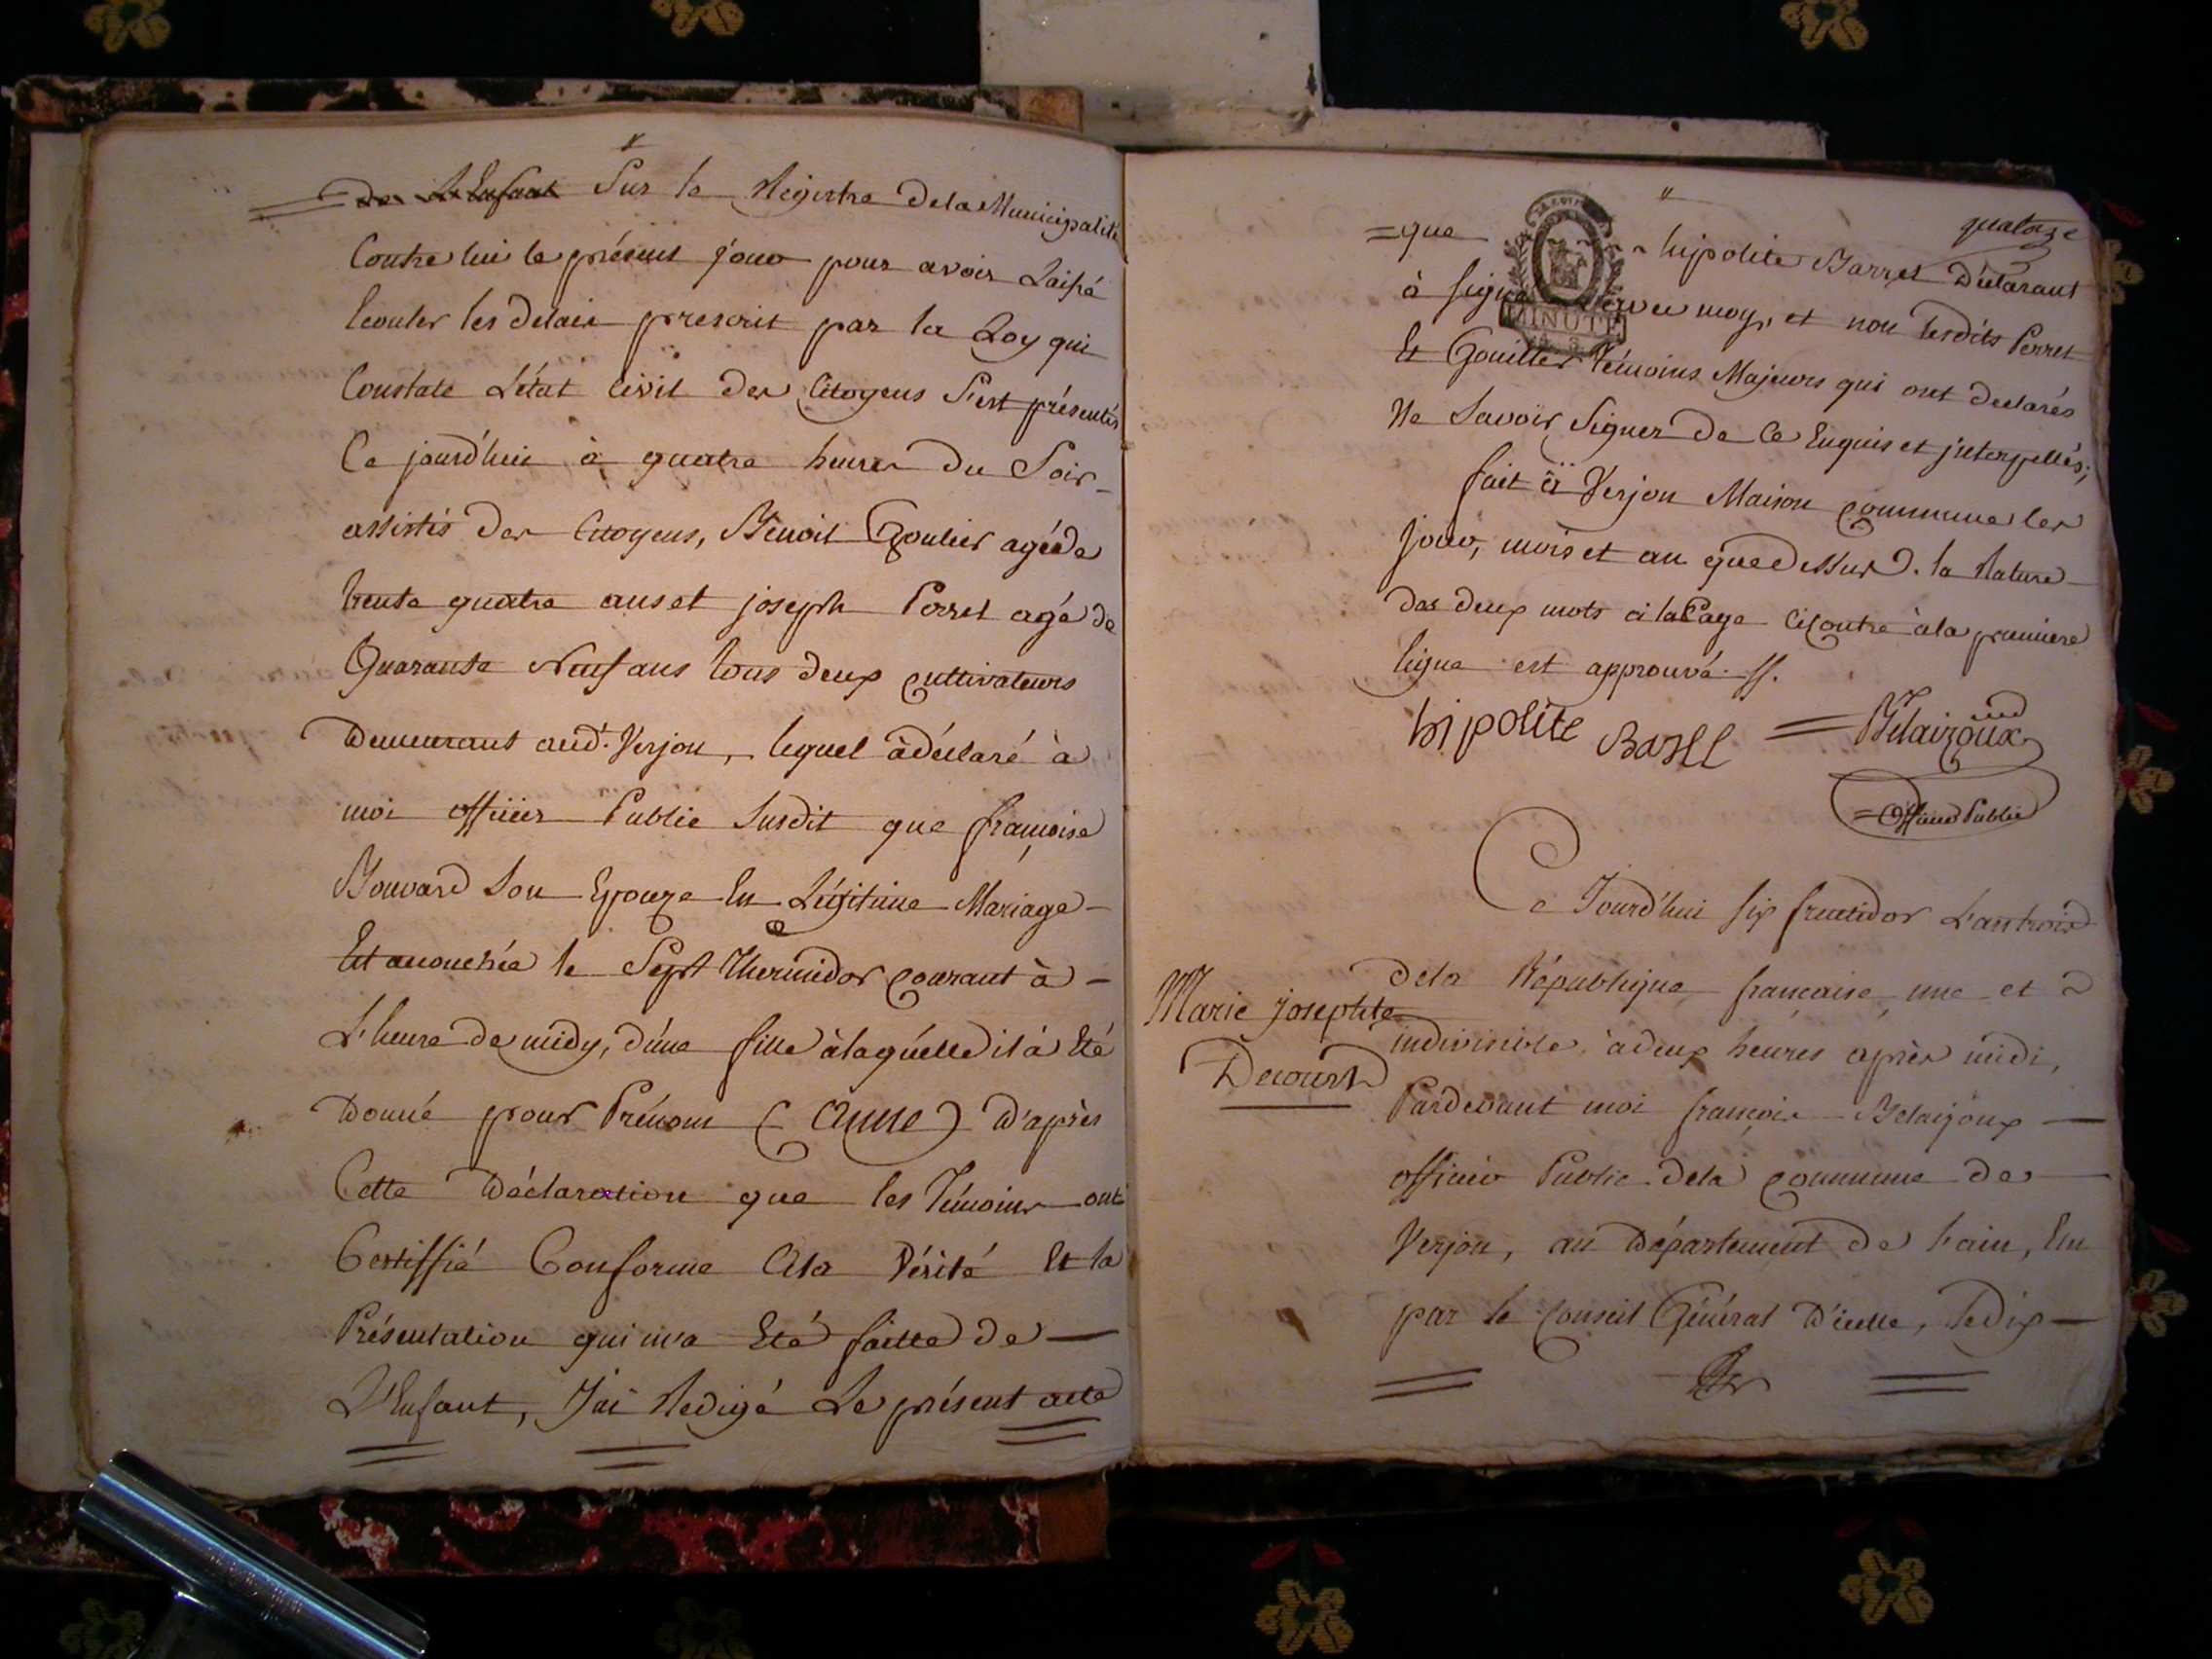 De L'Enfant Sur le Registre dela Municipalité
Contre lui le présent jour pour avoir Laissé
Ecouler les delais prescrit par la Loy qui
Constate L'état Civil des Citoyens S'est présentés
Ce jourd'hui à quatre heures du Soir
assistés des Citoyens, Benoit Goulier agé de
trente quatre ans et joseph Perret agé de
Quarante Neuf ans tous deux cultivateurs
Demeurant aud. Verjon, lequel à déclaré à
moi officier Public Susdit que françoise
Bouvard Son Epouze En Légitime Mariage
Est accouchée le Sept Thermidor courant à
L'heure de midy, d'une fille à laquelle il à Eté
Donné pour Prénom (Anne) D'après
Cette Déclaration que les Témoins ont
Certiffié Conforme Ala Vérité Et la
Présentation qui m'a Eté faitte de
L'Enfant, J'ai Redigé Le présent acte
quatorze
=que hipolite Barret Déclarant
à signé avec moy, et non lesdits Perret
MINUTE
Et Goullier Témoins Majeurs qui ont declarés
Ne Savoir Signer de Ce Enquis et jnterpellés;
fait à Verjon Maison commune les
jour, mois et an que dessus. la Rature
des deux mots à la Page Cicontre à la premiere
ligne est approuvé.
hipolite Barel = Belaizoux
= Officier Public
Ce Jourd'hui six fructidor L'an trois
dela République française, une et
Marie josephte
indivisible, à deux heures après midi,
Decourt
Pardevant moi françois Belaizoux
officier Public dela commune de
Verjon, au Département de l'ain, Elu
par le Conseil Général D'icelle, le dix